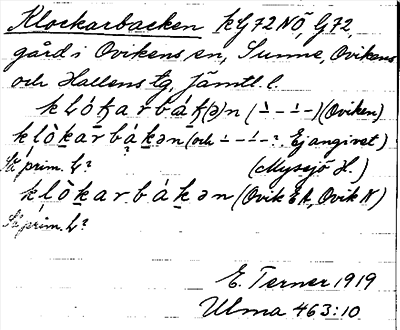 Klockarbacken KG72NÖ, G72,
gård i Ovikens sn, Sunne, Ovikens
och Hallens tg, Jämtl. l.
(Oviken)
klòkarbàkən (och Ej angivet)
Så prim. ?
(Myssjö H.)
klòkarbákən (Ovik EA, Ovik N)
Så prim. ?
E. Terner 1919
Ulma 463:10